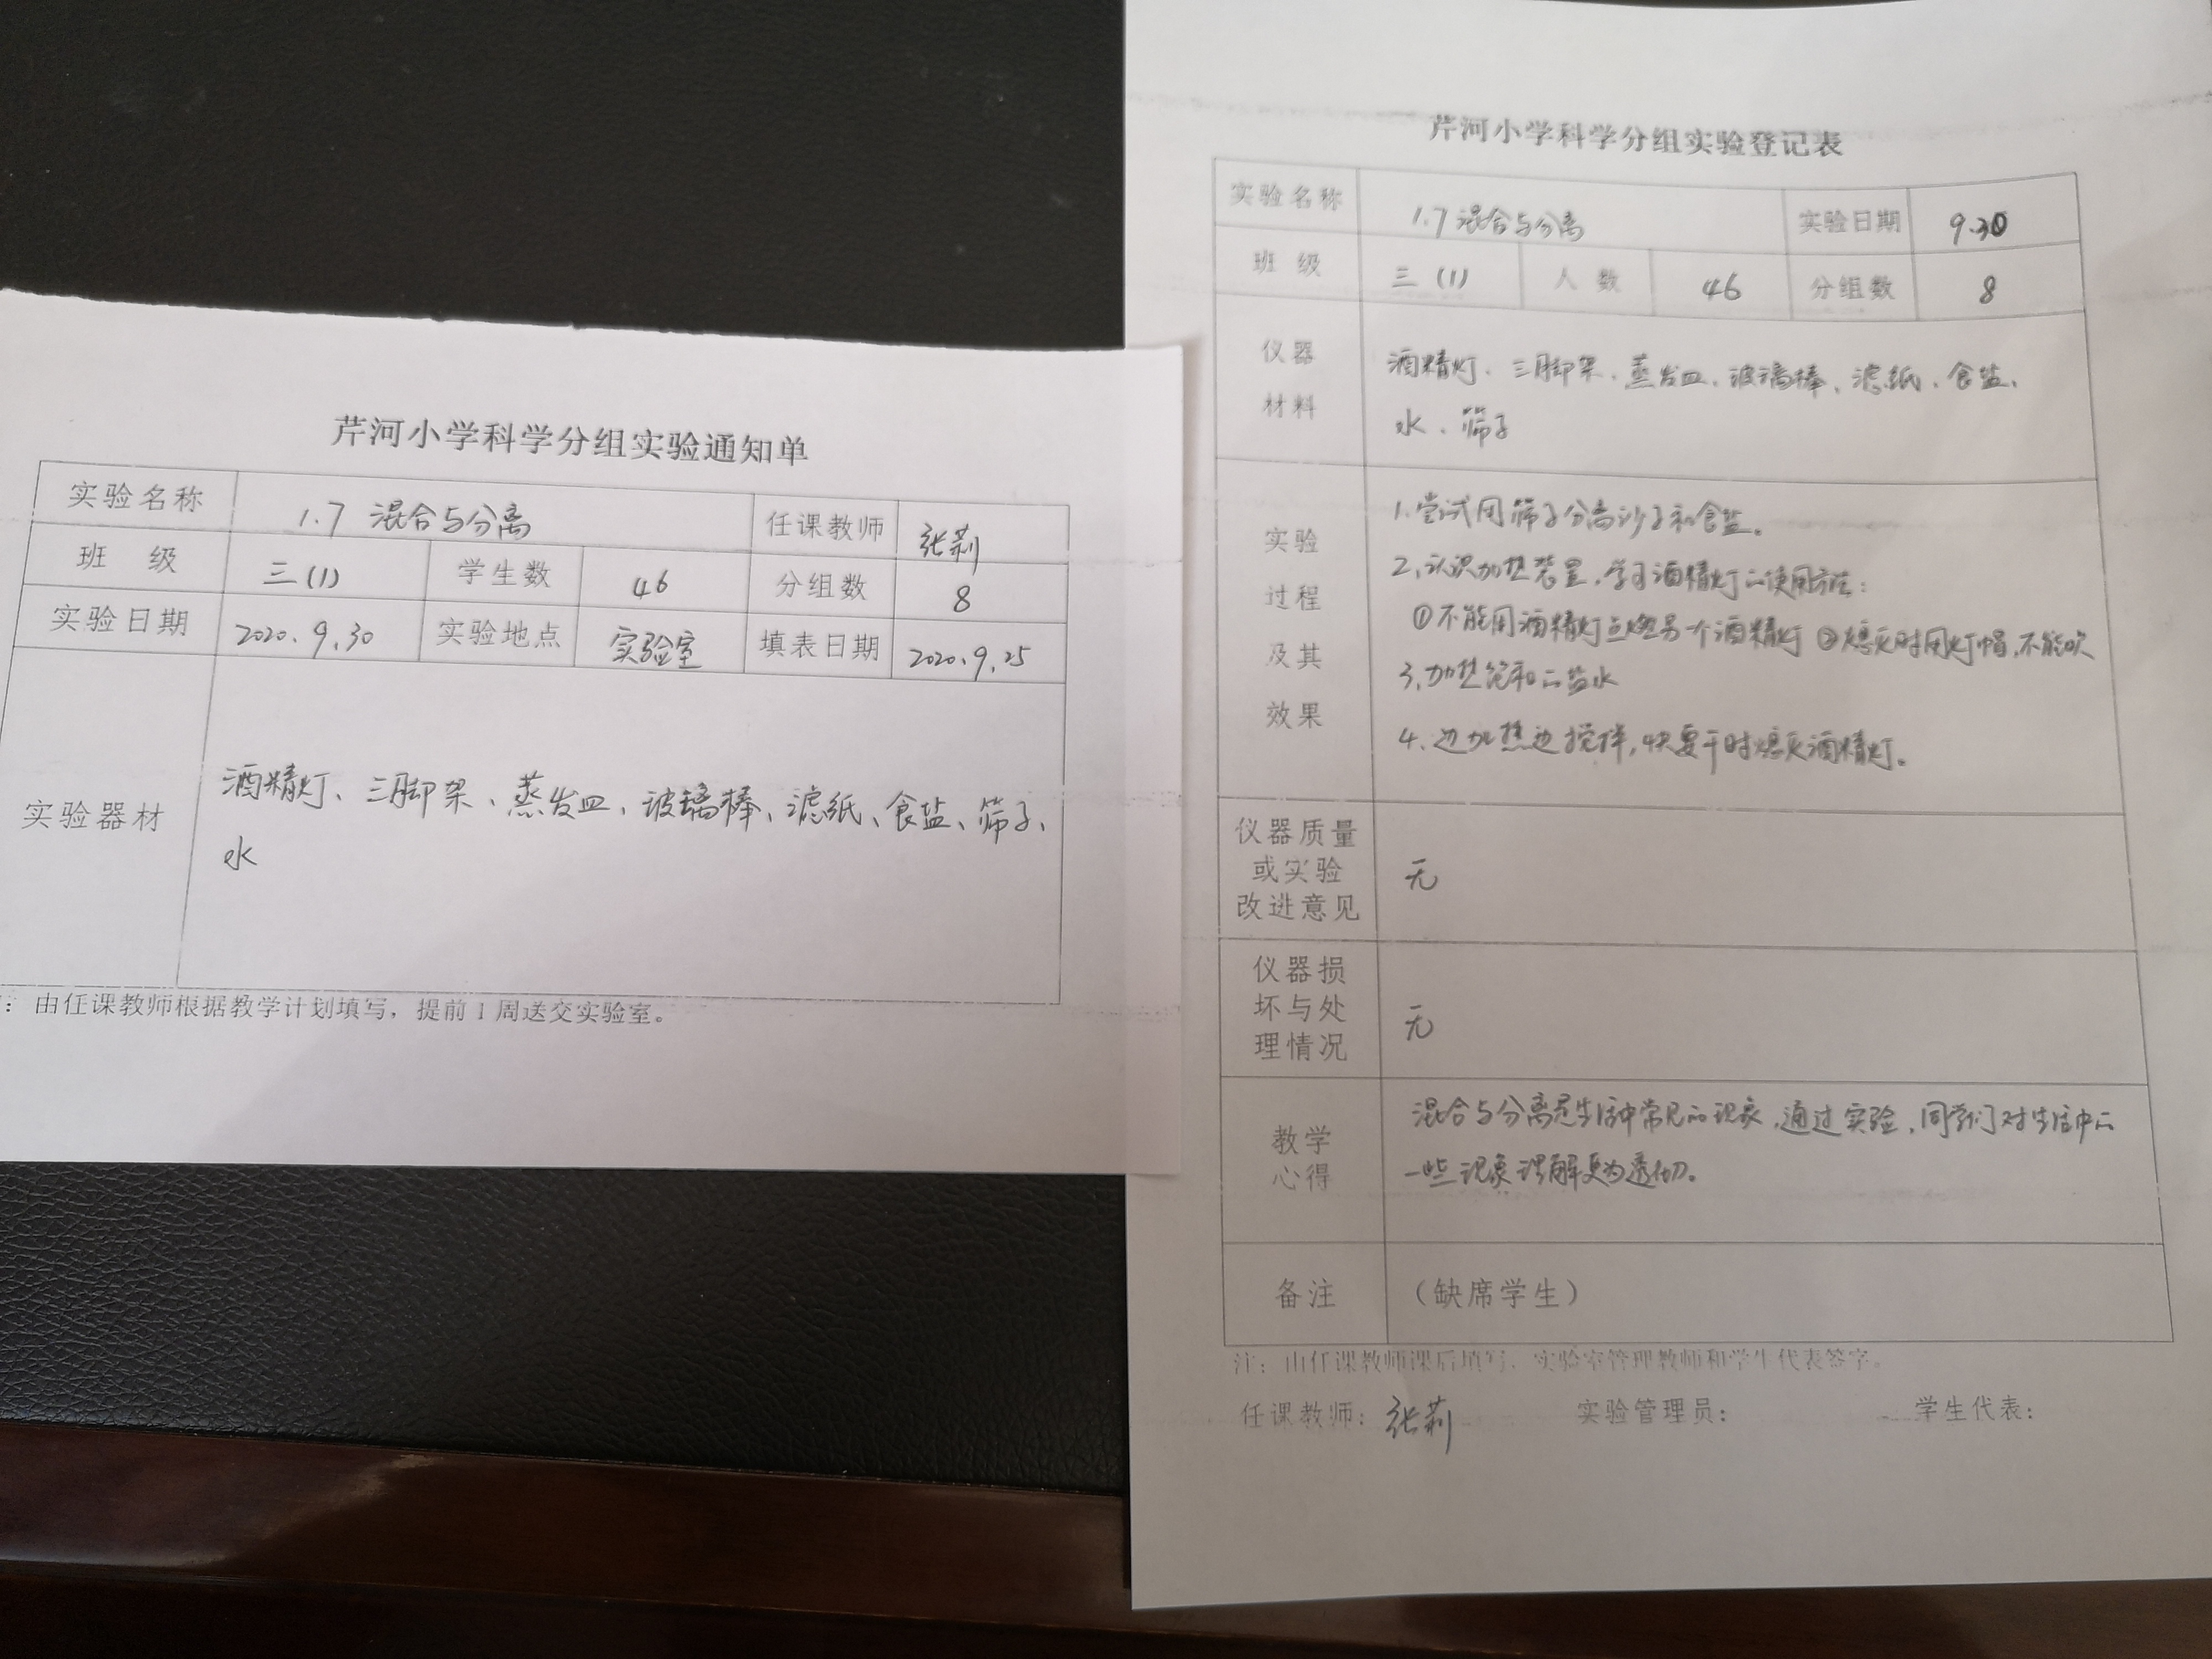 芹河小学科学分组实验通知单
实验名称 1.7 混合与分离 任课教师 张莉
班 级 三(1) 学生数 46 分组数 8
实验日期 2020.9.30 实验地点 实验室 填表日期 2020.9.25
实验器材
酒精灯、三脚架、蒸发皿、玻璃棒、滤纸、食盐、筛子、
水
：由任课教师根据教学计划填写，提前1周送交实验室。
芹河小学科学分组实验登记表
实验名称 1.7 混合与分离 实验日期 9.30
班 级 三(1) 人 数 46 分组数 8
仪器
材料
酒精灯、三脚架、蒸发皿、玻璃棒、滤纸、食盐、
水、筛子
实验
过程
及其
效果
1.尝试用筛子分离沙子和食盐。
2.认识加热装置，学习酒精灯的使用方法：
①不能用酒精灯点燃另一个酒精灯 ②熄灭时用灯帽，不能吹
3.加热饱和的盐水
4.边加热边搅拌，快要干时熄灭酒精灯。
仪器质量
或实验
改进意见
无
仪器损
坏与处
理情况
无
教学
心得
混合与分离是生活中常见的现象，通过实验，同学们对生活中的
一些现象理解更为透彻。
备注 （缺席学生）
注：由任课教师课后填写，实验室管理教师和学生代表签字。
任课教师：张莉 实验管理员： 学生代表：